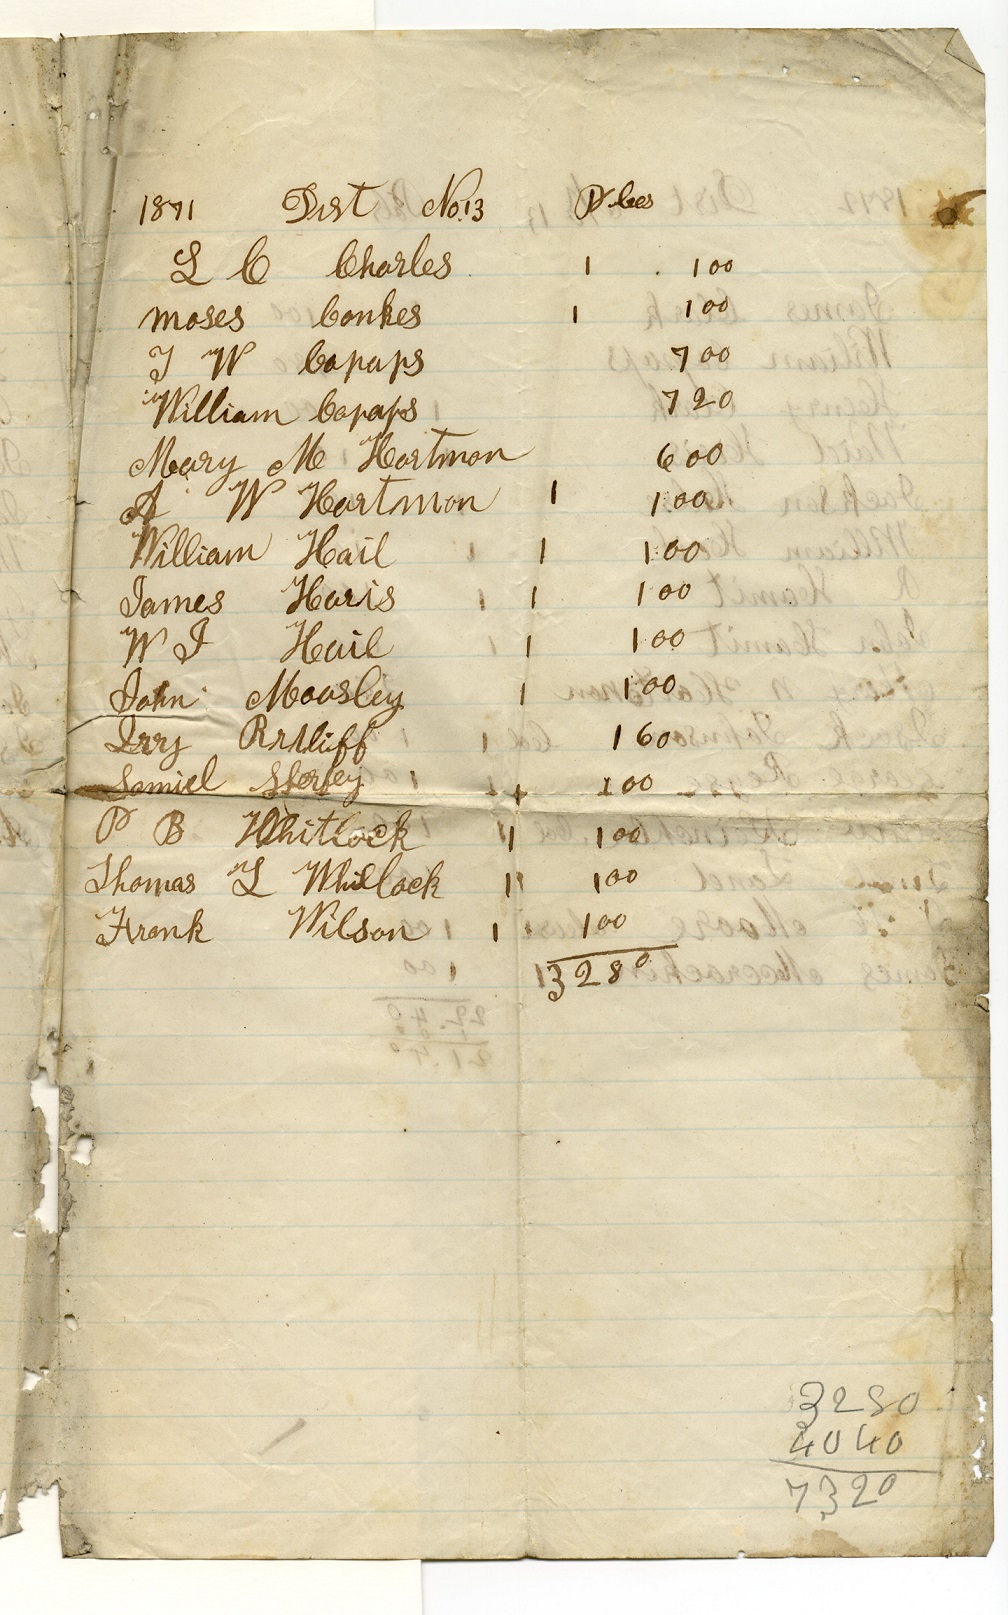 1871 Dist No.13 P bes
L C Charles 1 100
moses Conkes 1 100
T W Copaps 700
William Copaps 720
Mary M Hartman 600
A W Hartman 1 100
William Hail 1 100
James Haris 1 100
W J Hail 1 100
John Moosley 1 100
Irry Ratliff 160
Samiel Sforfey 1 100
P B Whitlock 1 100
Thomas L Whitlock 1 100
Frank Wilson 1 100
3280
3280
4040
7320